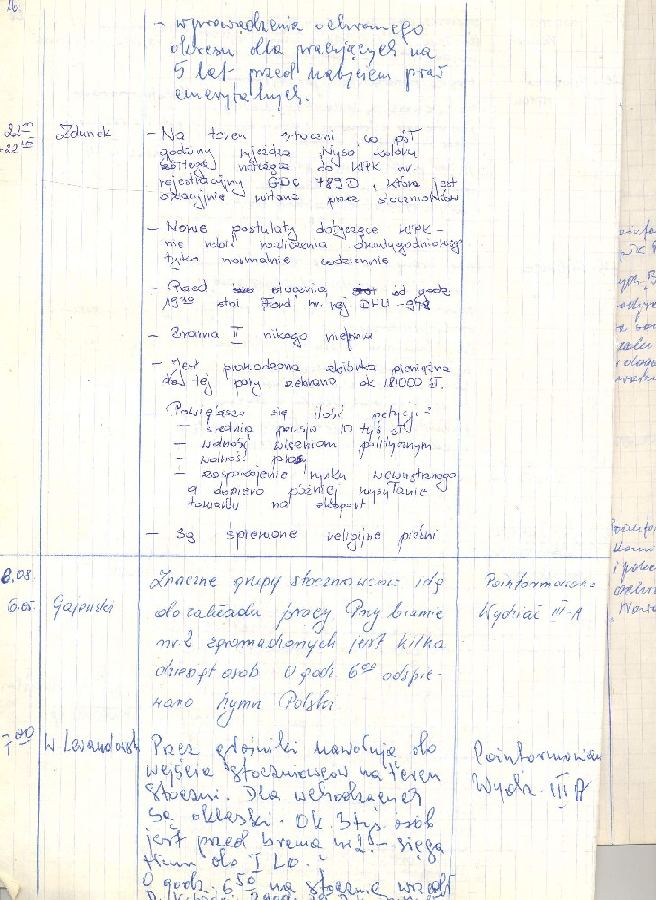 - wprowadzenia ochronnego
okresu dla pracujących na
5 lat przed nabyciem praw
emerytalnych.
Zdunek
- Na teren stoczni co pół
godziny wjeżdża Nysa koloru
należąca do WPK nr
rejestracyjny GDC 789D, która jest
owacyjnie witana przez stoczniowców
- Nowe postulaty dotyczące WPK -
nie robić rozliczenia dwutygodniowego
tylko normalnie codziennie
- Przed stocznią od godz
19 30 stoi Ford nr rej
- Brama II nikogo nie
- Jest prowadzona zbiórka pieniężna
do tej pory zebrano ok 18.000 zł.
Powiększa się ilość petycji:
- średnia pensja 10 tyś zł.
- wolność więźniom politycznym
- wolność prasy
- zaspokojenie rynku wewnętrznego
a dopiero później wysyłanie
towaru na eksport
- Są śpiewane religijne pieśni
Gajewski
Znaczne grupy stoczniowców idą
do zakładu pracy Przy bramie
nr. 2 zgromadzonych jest kilka
dziesiąt osób U godz. 6 00 odśpie-
wano hymn Polski
Poinformowano
Wydział III-A
W Lewandowski
Przez głośniki nawołują do
wejścia stoczniowców na teren
stoczni. Dla wchodzących
są oklaski. Ok. 3 tyś. osób
jest przed bramą nr 2 - sięga
tłum do I LO.
O godz. 6 50 na stocznię
Poinformowano
Wydz. III A